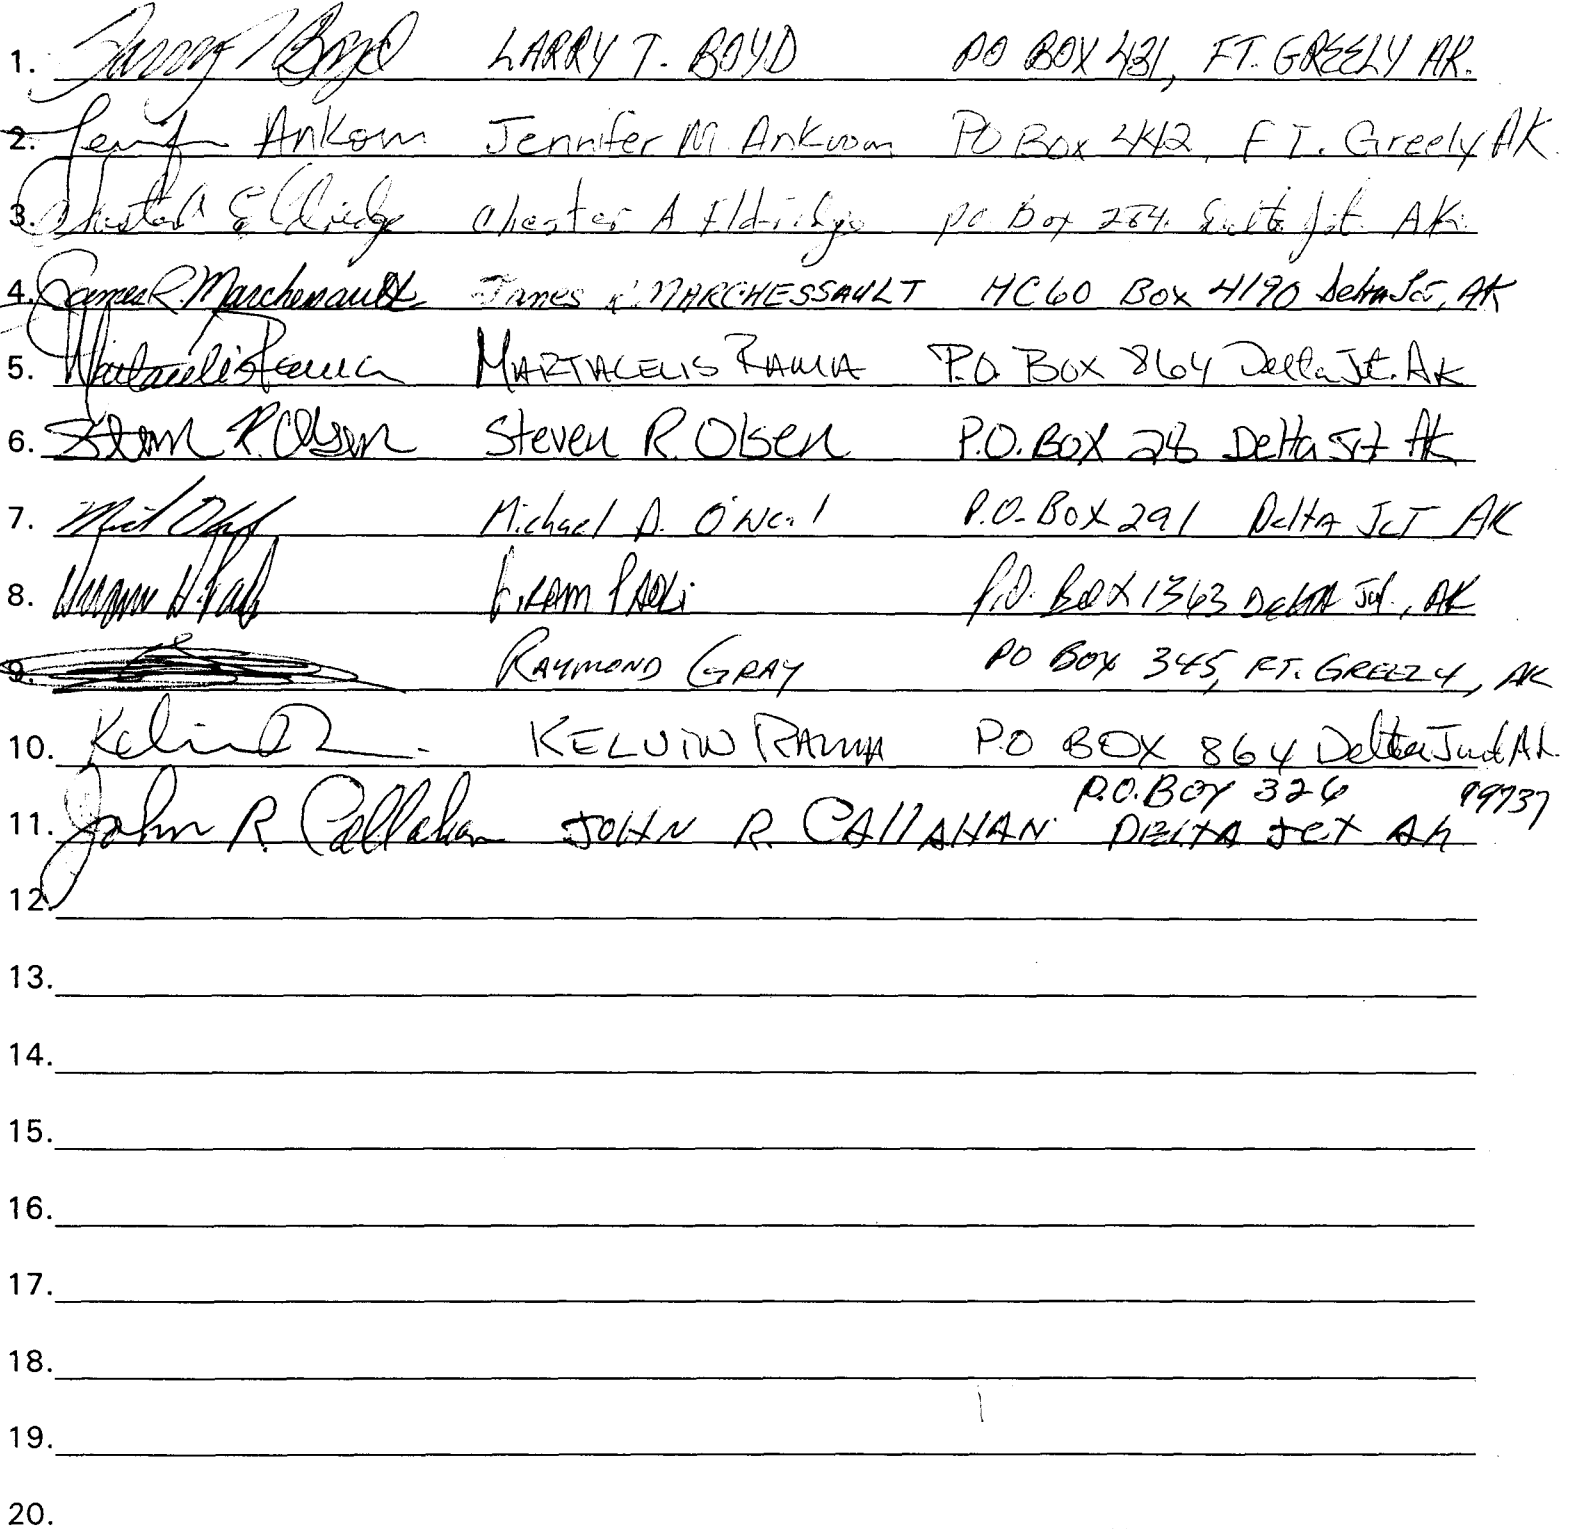 1. Larry T Boyd LARRY T. BOYD PO BOX 431, FT. GREELY AK.
2. Ankom Jennifer M. Ankrom PO Box 442, FT. Greely AK.
3. Chester A Eldridge Po Box 284 Delta Jct. AK.
4. James R. Marchessault James R. MARCHESSAULT HC60 Box 4190 Delta Jct, AK
5. MARTACELIS RAMA P.O. Box 864 Delta Jct. AK
6. Steven R. Olsen Steven R. Olsen P.O. BOX 28 Delta Jct AK
7. Michael D. O'Neal P.O. BOX 291 Delta Jct AK
8. P.O. BOX 1363 Delta Jct., AK
9. RAYMOND GRAY PO BOX 345, FT. GREELY, AK
10. KELVIN RAMA PO BOX 864 Delta Junct AK
P.O. BOX 326 99737
11. John R. Callahan JOHN R. CALLAHAN DELTA JCT AK
12.
13.
14.
15.
16.
17.
18.
19.
20.